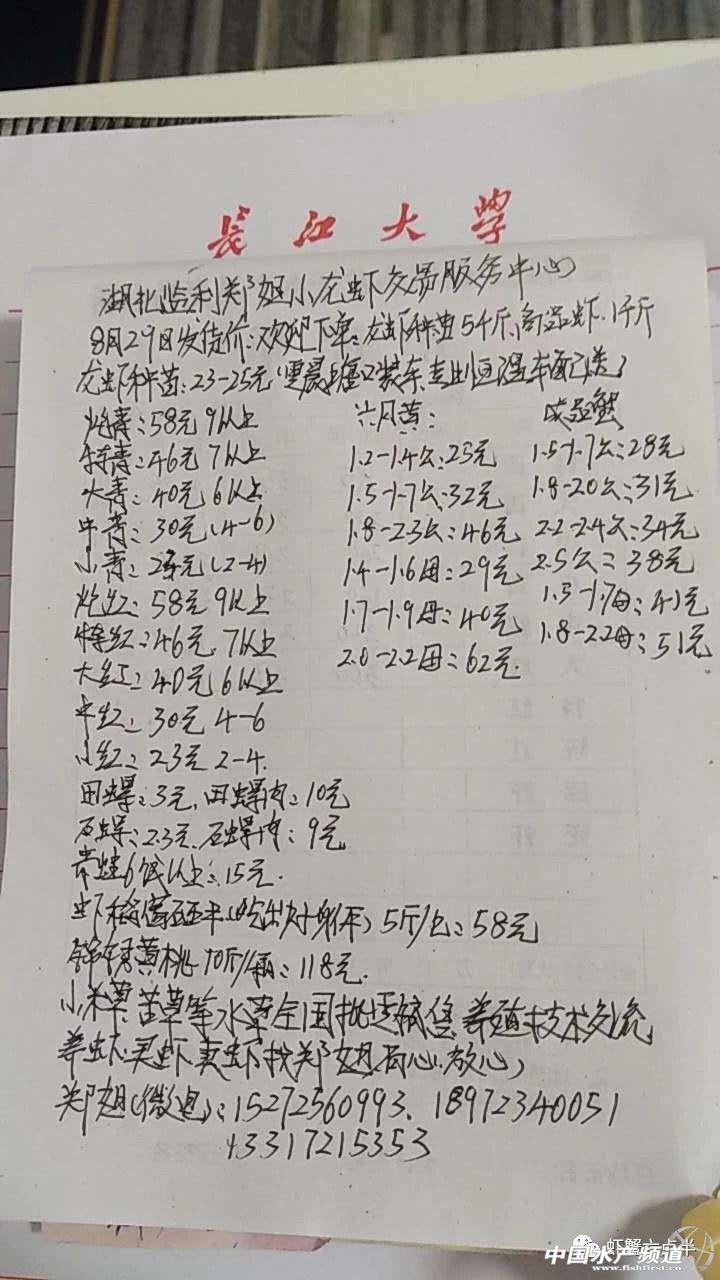 长江大学
湖北监利郑姐小龙虾交易服务中心
8月29日发货价:欢迎下单:龙虾种苗5千斤,商品虾1千斤
龙虾种苗:23-25元(凌晨塘口装车,走恒温车配送)
炮青:58元 9以上
特青:46元 7以上
大青:40元 6以上
中青:30元(4-6)
小青: (2-4)
炮红:58元 9以上
特红:46元 7以上
大红:40元 6以上
中红:30元 4-6
小红:23元 2-4.
六月黄:
1.2-1.4公:25元
1.5-1.7公:32元
1.8-2.3公:46元
1.4-1.6母:29元
1.7-1.9母:40元
2.0-2.2母:62元.
成品蟹
1.5-1.7公:28元
1.8-2.0公:31元
2.2-2.4公:34元
2.5公:38元
1.5-1.7母:41元
1.8-2.2母:51元
田螺:3元,田螺肉:10元
石螺:2.3元,石螺肉:9元
青蛙6钱以上:15元.
虾稻富硒米(吃出好身体)5斤/包:58元
锦绣黄桃10斤/箱:118元.
小籽草苦草等水草全国批运销售,养殖技术交流
养虾、买虾、卖虾找郑姐,省心、放心,
郑姐(微电):15272560993、18972340051
13317215353
虾蟹六点半
中国水产频道
www.fishfirst.cn